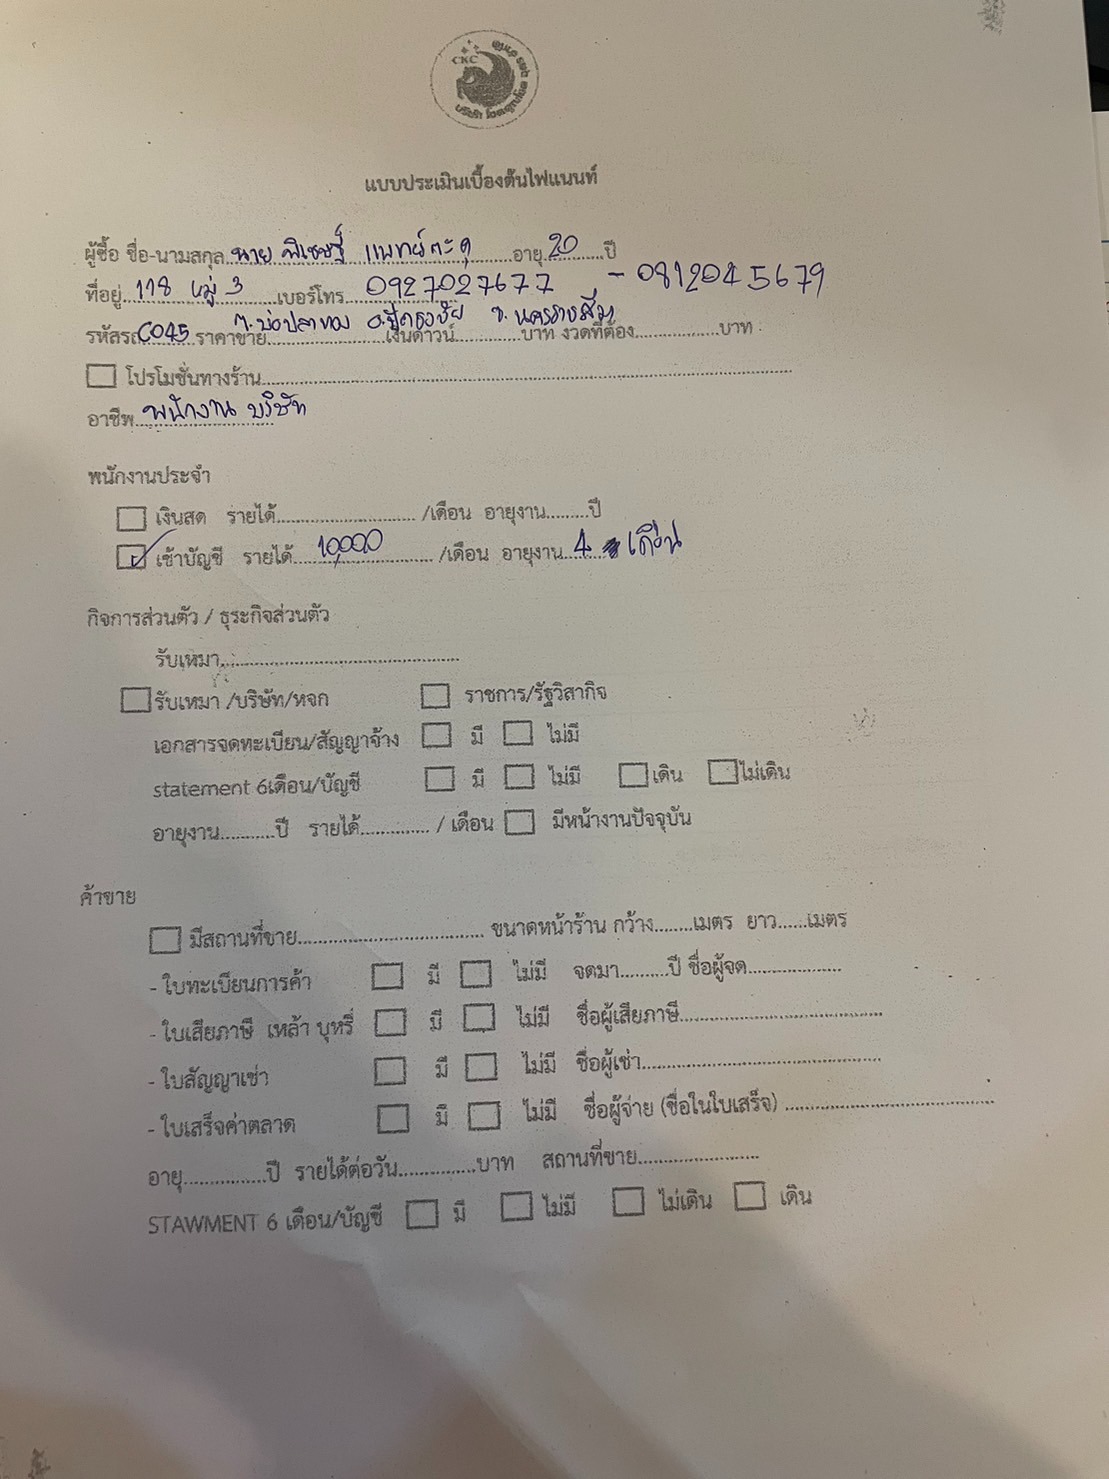 CKC
แบบประเมินเบื้องต้นไฟแนนท์
ผู้ซื้อ ชื่อ-นามสกุล นาย พิเชษฐ์ แพทย์ตะคุ อายุ 20 ปี
ที่อยู่ 118 หมู่ 3 เบอร์โทร 0927027677 - 0812045679
ต.บ่อปลาทอง อ.ปักธงชัย จ.นครราชสีมา
รหัสรถ C045 ราคาขาย เงินดาวน์ บาท งวดที่ต้อง บาท
โปรโมชั่นทางร้าน
อาชีพ พนักงาน บริษัท
พนักงานประจำ
เงินสด รายได้ /เดือน อายุงาน ปี
เข้าบัญชี รายได้ 10,000 /เดือน อายุงาน 4 เดือน
กิจการส่วนตัว / ธุระกิจส่วนตัว
รับเหมา
รับเหมา /บริษัท/หจก ราชการ/รัฐวิสากิจ
เอกสารจดทะเบียน/สัญญาจ้าง มี ไม่มี
statement 6เดือน/บัญชี มี ไม่มี เดิน ไม่เดิน
อายุงาน ปี รายได้ / เดือน มีหน้างานปัจจุบัน
ค้าขาย
มีสถานที่ขาย ขนาดหน้าร้าน กว้าง เมตร ยาว เมตร
- ใบทะเบียนการค้า มี ไม่มี จดมา ปี ชื่อผู้จด
- ใบเสียภาษี เหล้า บุหรี่ มี ไม่มี ชื่อผู้เสียภาษี
- ใบสัญญาเช่า มี ไม่มี ชื่อผู้เช่า
- ใบเสร็จค่าตลาด มี ไม่มี ชื่อผู้จ่าย (ชื่อในใบเสร็จ)
อายุ ปี รายได้ต่อวัน บาท สถานที่ขาย
STAWMENT 6 เดือน/บัญชี มี ไม่มี ไม่เดิน เดิน